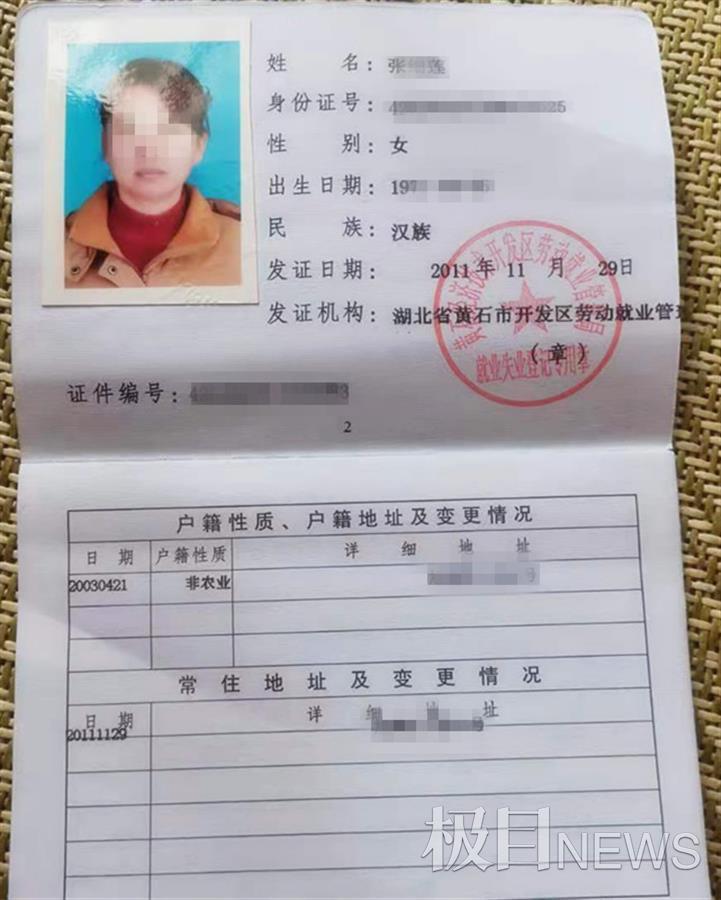 姓 名：张
身份证号：
性 别：女
出生日期：197
民 族：汉族
发证日期：2011年11月29日
发证机构：湖北省黄石市开发区劳动就业管理
（章）
就业失业登记专用章
证件编号：
2
户籍性质、户籍地址及变更情况
日期 户籍性质 详细地址
20030421 非农业
常住地址及变更情况
日期 详细地址
20111129
极目NEWS